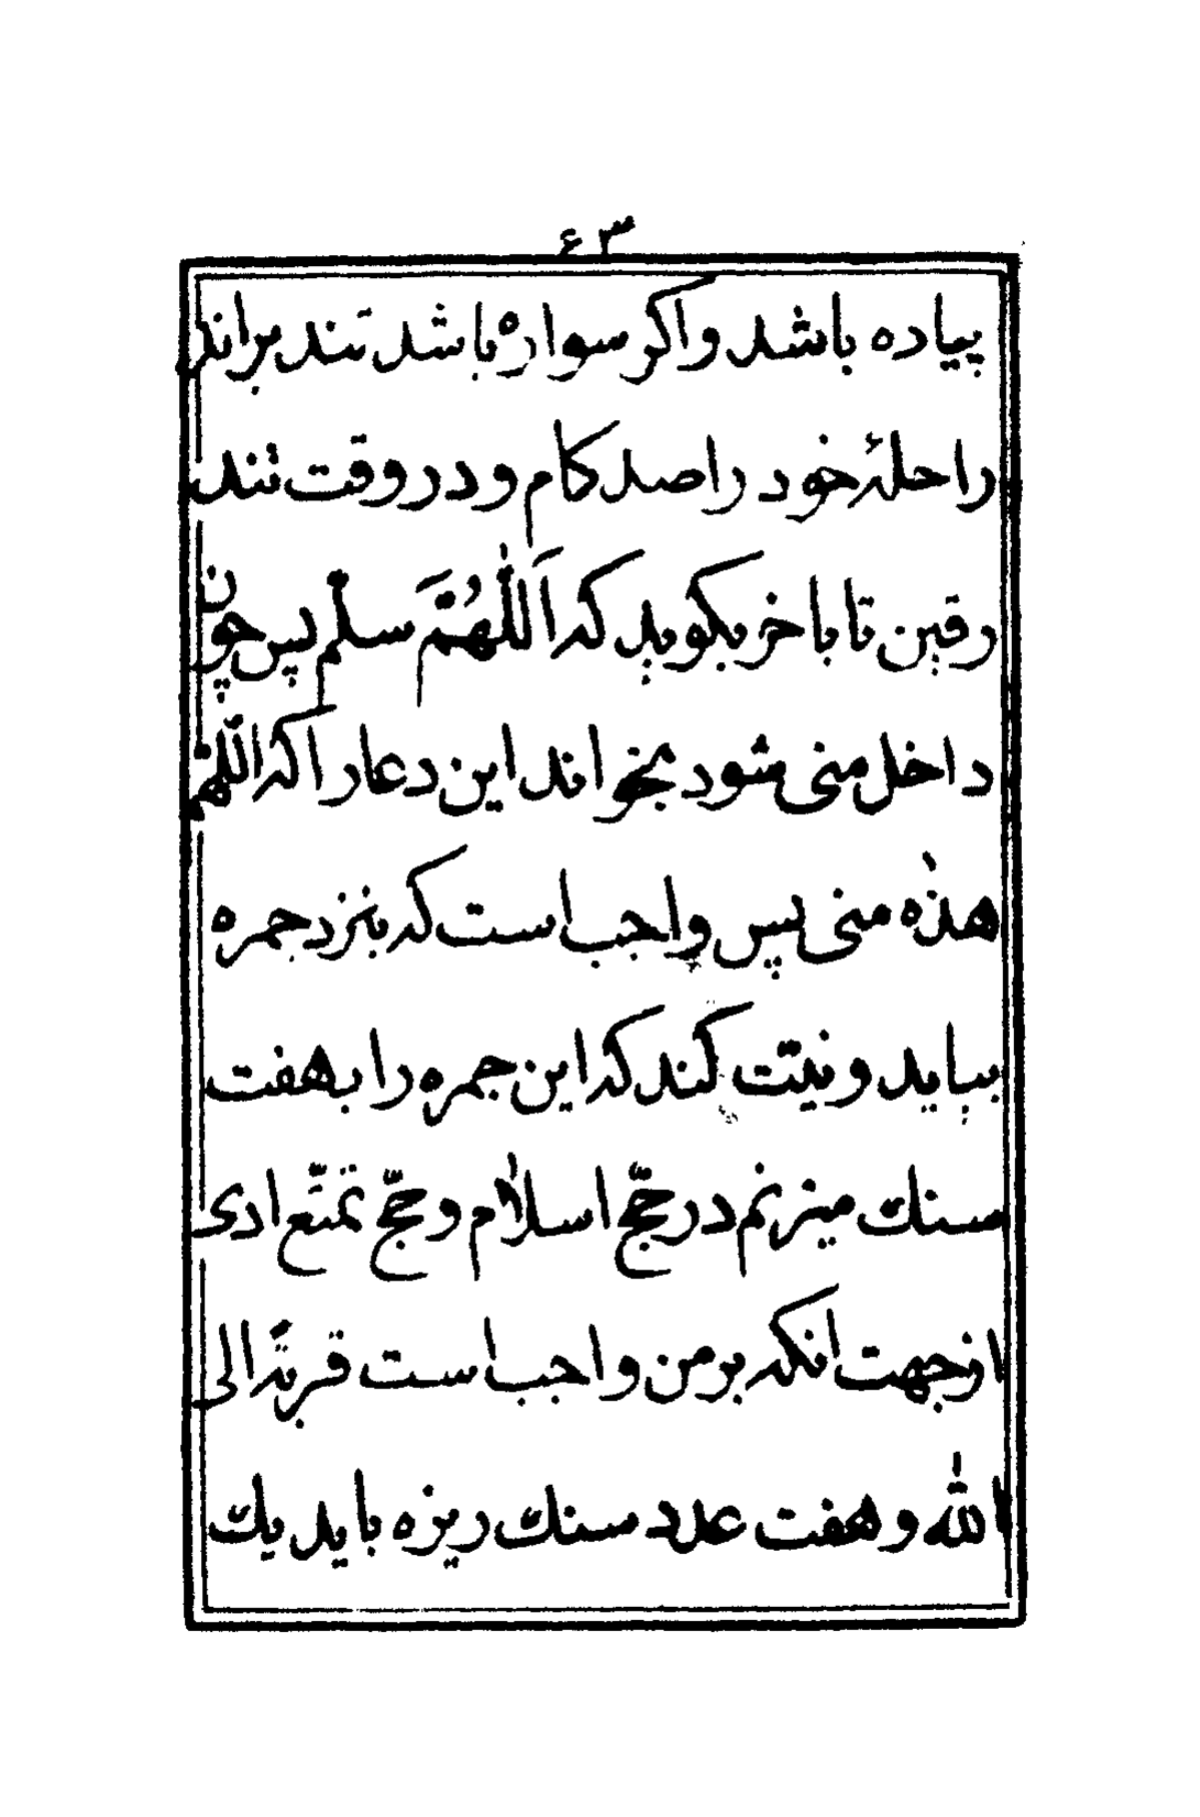 ۶۳
پیاده باشد واکر سواره باشد تند براند
راحلهٔ خود را صد کام و در وقت تند
رفتن تا باخر بکوید که اَللّٰهُمَّ سلّم پس چون
داخل منی شود بخواند این دعا را که اللّهمّ
هذٰه منی پس واجب است که بنزد جمره
بیاید و نیّت کند که این جمره را بهفت
سنك میزنم در حجّ اسلام و حجّ تمتّع ادی
از جهت انکه بر من واجب است قربةً الی
الله و هفت عدد سنك ریزه باید یك